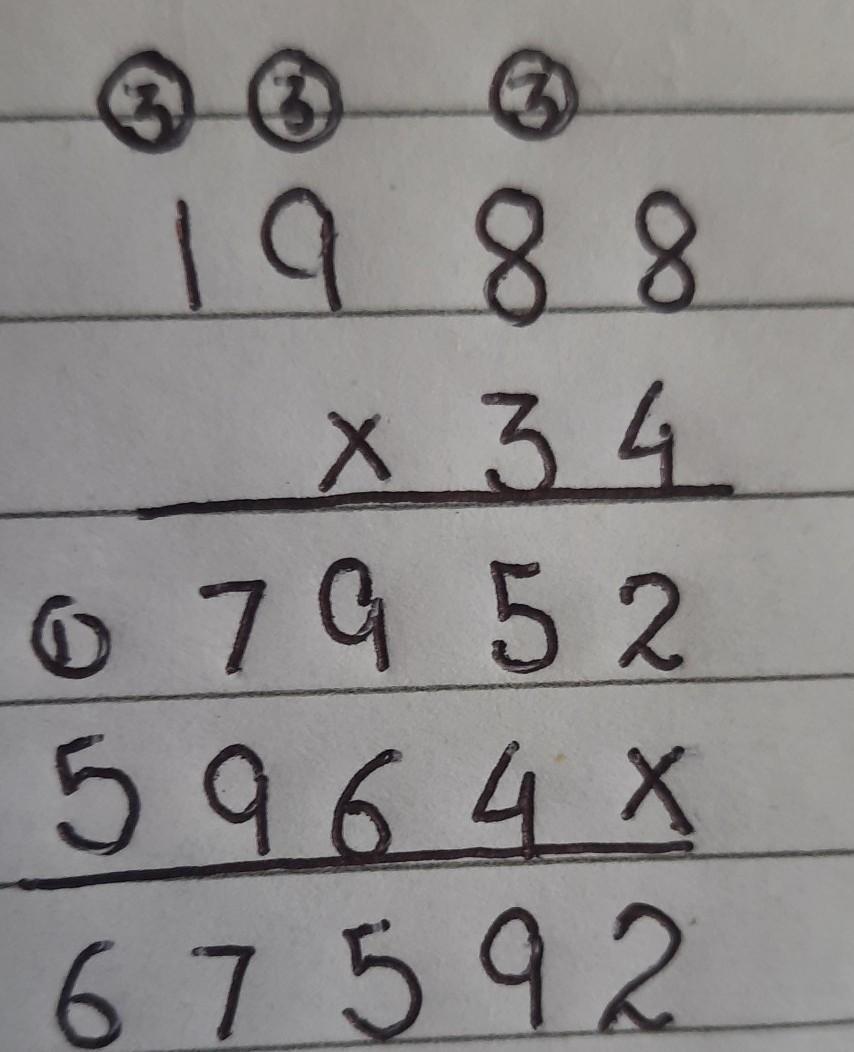 ③ ③ ③
1 9 8 8
x 3 4
① 7 9 5 2
5 9 6 4 x
6 7 5 9 2